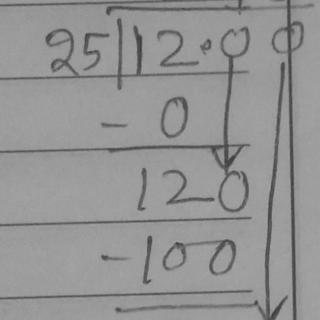 25|12.00
- 0
120
-100